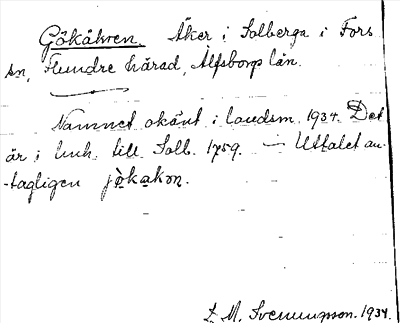 Gökåkren. Åker i Solberga i Fors
sn, Flundre härad, Älfsborgs län.
Namnet okänt i landsm. 1934. Det
är i enh. till Solb. 1759. — Uttalet an-
-tagligen jökakɷn.
L. M. Svenungsson. 1934.